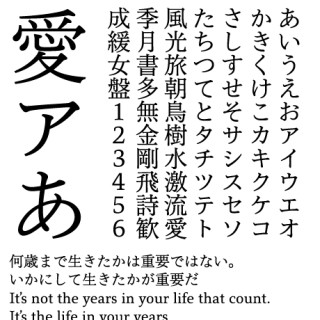 愛アあ
あいうえおアイウエオ
かきくけこカキクケコ
さしすせそサシスセソ
たちつてとタチツテト
風光旅朝鳥樹水激流愛
季月書多無金剛飛詩歓
成緩女盤123456
何歳まで生きたかは重要ではない。
いかにして生きたかが重要だ
It's not the years in your life that count.
It's the life in your years